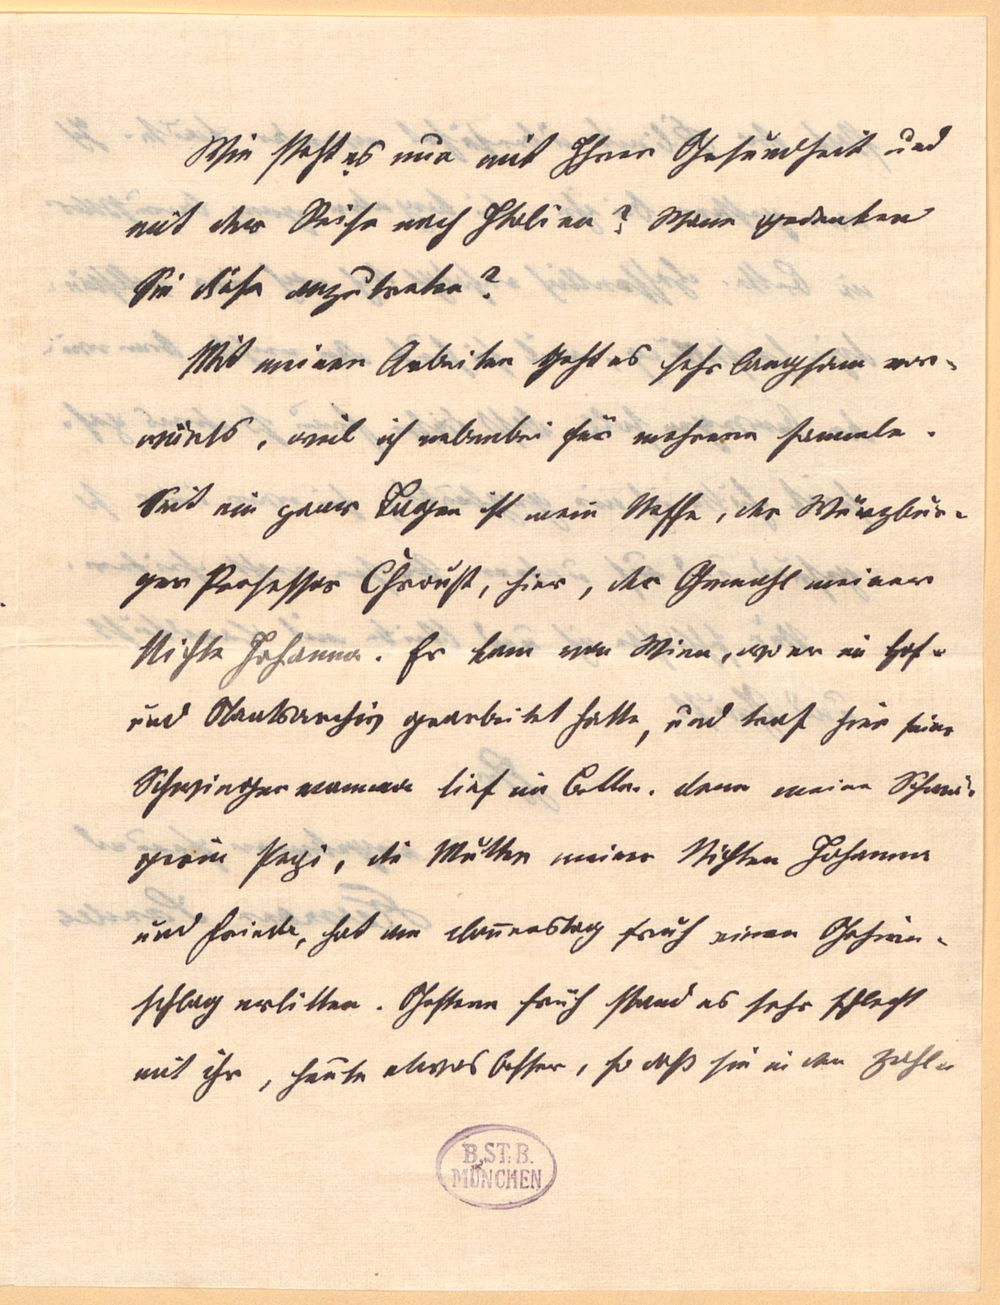 Wie steht es nun mit Ihrer Gesundheit und
mit der Reise nach Italien? Wann gedenken
Sie diese anzutreten?
Mit meinen Arbeiten geht es sehr langsam vor-
wärts, weil ich nebenbei für mehrere sammle.
Seit ein paar Tagen ist mein Neffe, der Würzbur-
ger Professor Chroust, hier, der Gemahl meiner
Nichte Johanna. Er kam von Wien, wo er im Hof-
und Staatsarchiv gearbeitet hatte, und traf hier seine
Schwiegermama tief im Bette. denn meine Schwä-
gerin Pepi, die Mutter meiner Nichten Johanna
und Friede, hat am Donnerstag früh einen Gehirn-
schlag erlitten. Gestern früh stand es sehr schlecht
mit ihr, heute etwas besser, so daß sie in den
B.ST.B.
MÜNCHEN